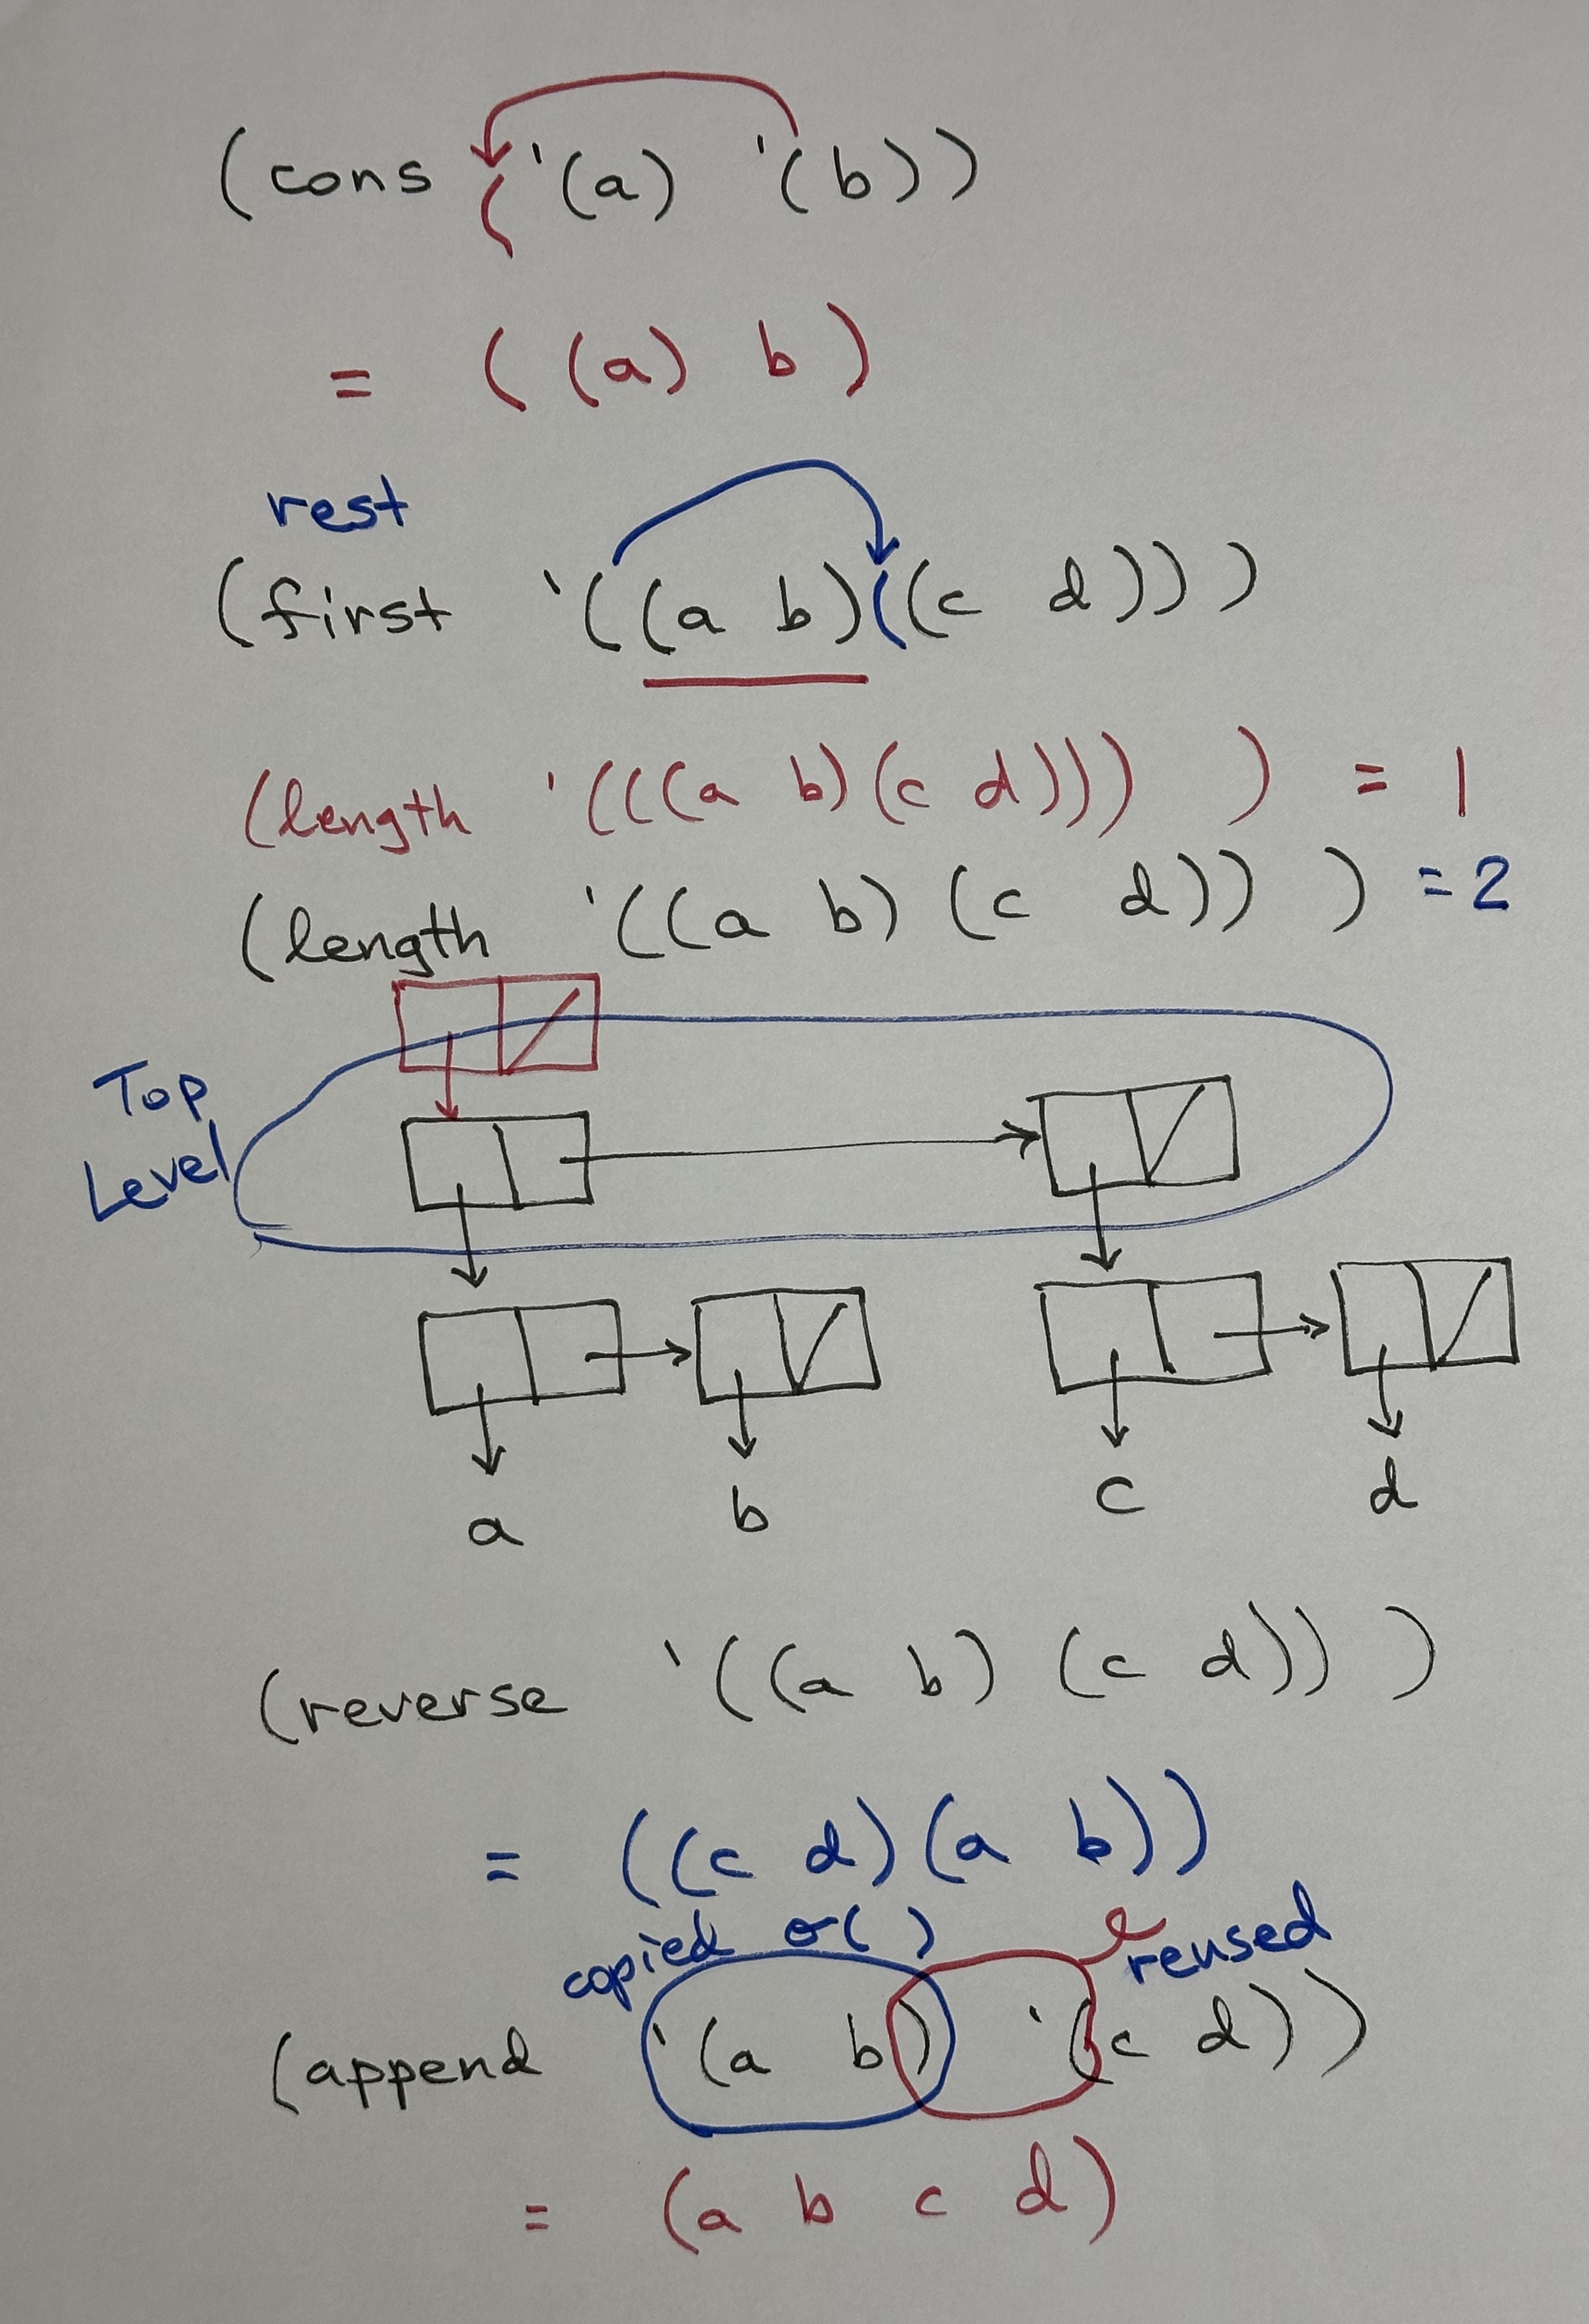 (cons ( '(a) '(b))
= ((a) b)
rest
(first '((a b)((c d)))
(length '(((a b)(c d))) ) = 1
(length '((a b) (c d)) ) = 2
Top
Level
a b c d
(reverse '((a b) (c d)) )
= ((c d)(a b))
copied o( ) reused
(append '(a b) '(c d))
= (a b c d)